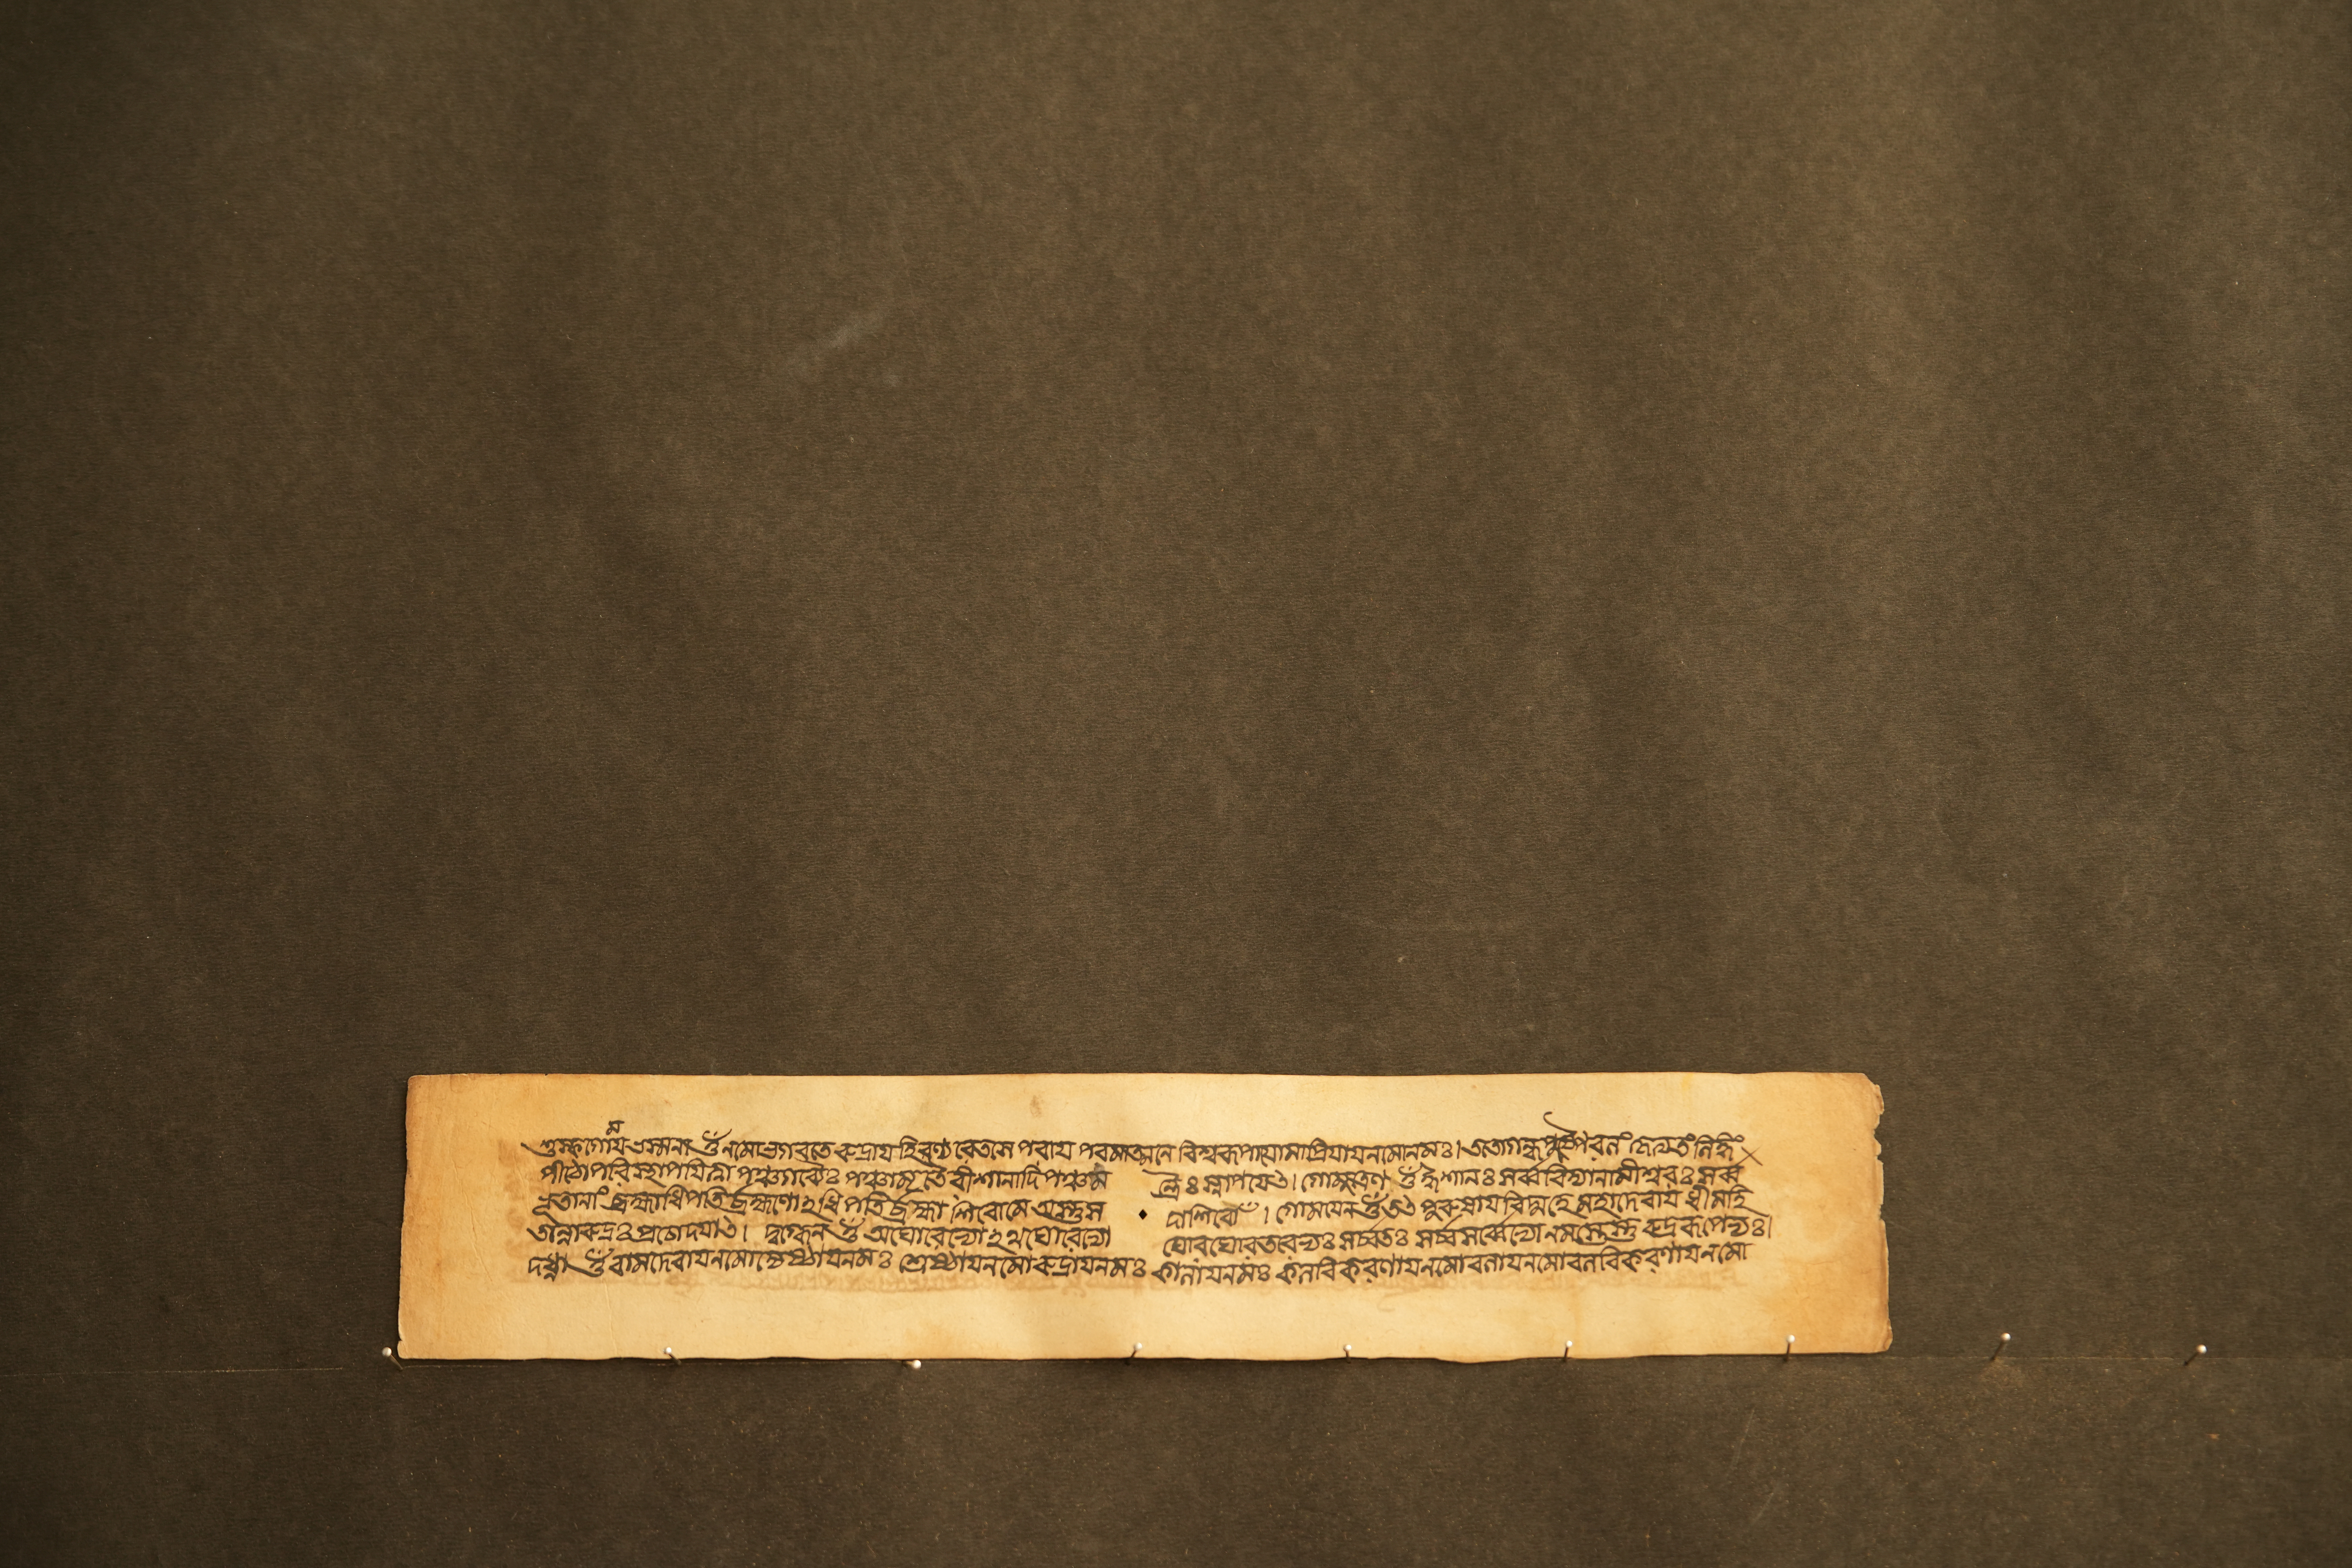 শুষ্কগোময়ভস্মনা ওঁ নমো ভগবতে রুদ্রায় হিরণ্যরেতসে পরায় পরমাত্মনে বিশ্বরূপায়োমাপ্রিয়ায় নমো নমঃ। ততো গন্ধপুষ্পৈ
পীঠোপরি স্থাপয়িত্বা পঞ্চগব্যৈঃ পঞ্চামৃতৈ শানাদি পঞ্চম ন্ত্রৈঃ স্নাপয়েৎ। গোমূত্রেণ ওঁ ঈশানঃ সর্ব্ববিদ্যানামীশ্বরঃ সর্ব্ব
ভূতানাং ব্রহ্মাধিপতির্ব্রহ্মণোঽধিপতির্ব্রহ্মা শিবোমে অস্তু স দাশিবোঁ। গোময়েন ওঁ তৎপুরুষায় বিদ্মহে মহাদেবায় ধীমহি
তন্নোরুদ্রঃ প্রচোদয়াৎ। দুগ্ধেন ওঁ অঘোরেভ্যোঽথ ঘোরেভ্যো ঘোরঘোরতরেভ্যঃ সর্ব্বতঃ সর্ব্ব সর্ব্বেভ্যো নমস্তেস্তু রুদ্ররূপেভ্যঃ।
দধ্না ওঁ বামদেবায় নমো জ্যেষ্ঠায় নমঃ শ্রেষ্ঠায় নমো রুদ্রায় নমঃ কালায় নমঃ কলবিকরণায় নমো বলায় নমো বলবিকরণায় নমো